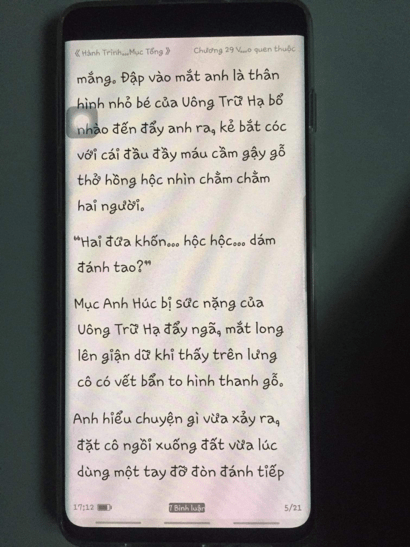 《Hành Trình...Mục Tổng》 Chương 29 V...o quen thuộc
mắng. Đập vào mắt anh là thân
hình nhỏ bé của Uông Trữ Hạ bổ
nhào đến đẩy anh ra, kẻ bắt cóc
với cái đầu đầy máu cầm gậy gỗ
thở hồng hộc nhìn chằm chằm
hai người.
“Hai đứa khốn... hộc hộc... dám
đánh tao?”
Mục Anh Húc bị sức nặng của
Uông Trữ Hạ đẩy ngã, mắt long
lên giận dữ khi thấy trên lưng
cô có vết bẩn to hình thanh gỗ.
Anh hiểu chuyện gì vừa xảy ra,
đặt cô ngồi xuống đất vừa lúc
dùng một tay đỡ đòn đánh tiếp
17:12 7 Bình luận 5/21